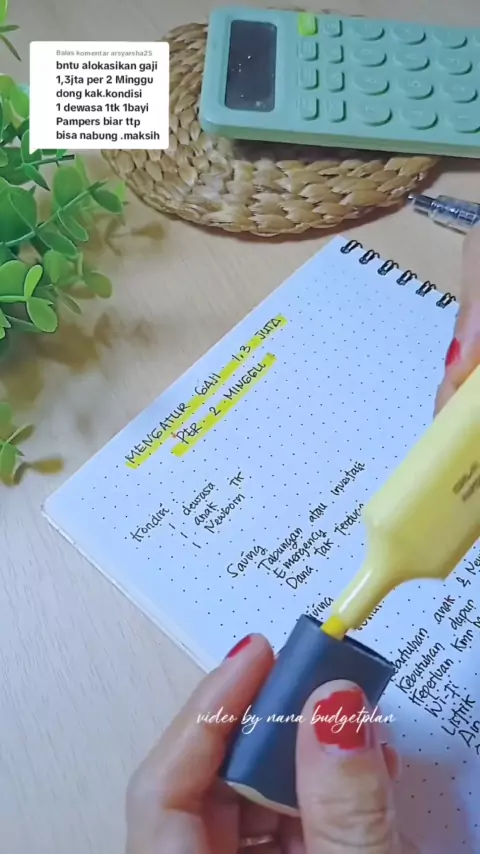 Balas komentar arsyarsha25
bntu alokasikan gaji
1,3jta per 2 Minggu
dong kak.kondisi
1 dewasa 1tk 1bayi
Pampers biar ttp
bisa nabung .maksih
MENGATUR GAJI 1,3 JUTA
PER 2 MINGGU
Kondisi :
1 dewasa
1 anak TK
1 Newborn
Saving
Tabungan atau investasi
Emergency
Dana tak
anak &
Kebutuhan dapur
Keperluan
Wi-Fi
Listrik
video by nana budgetplan